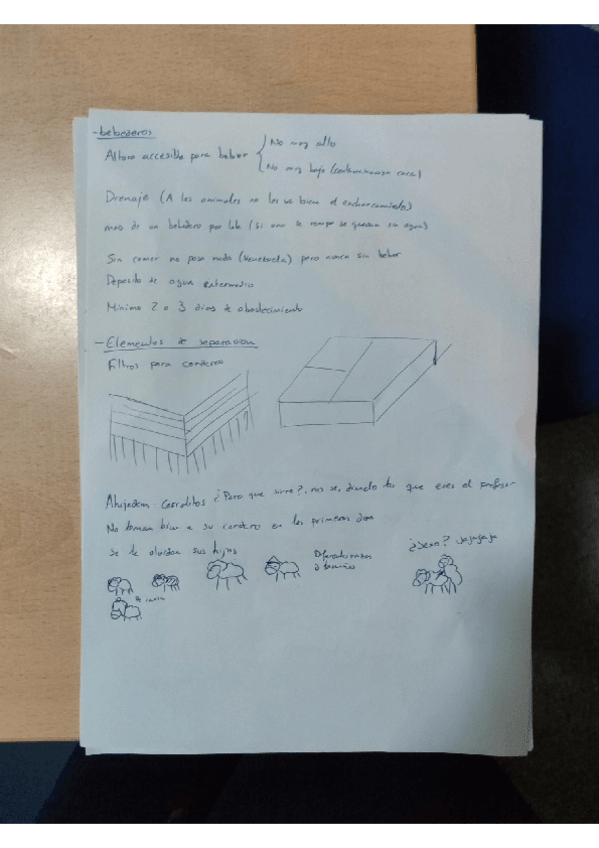 - bebederos
Altura accesible para beber
No muy alto
No muy bajo (contaminacion cacal)
Drenaje (A los animales no les va bien el encharcamiento)
mas de un bebedero por lote (si uno se rompe se quedan sin agua)
Sin comer no pasa nada (Venezuela) pero nunca sin beber
Deposito de agua intermedio
Minimo 2 o 3 dias de abastecimiento
- Elementos de separacion
Filtros para corderos
Ahijadera: Corralitos ¿Para que sirve?, no se, dimelo tu que eres el profesor
No toman bien a su cordero en los primeros dias
se le olvidan sus hijos
Diferentes razas
o tamaños
¿Sexo? Jajajaja